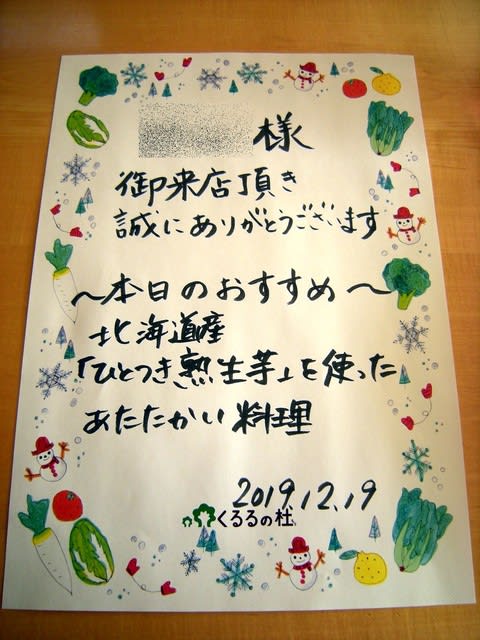 様
御来店頂き
誠にありがとうございます
～本日のおすすめ～
北海道産
「ひとつき熟生芋」を使った
あたたかい料理
2019.12.19
くるるの杜